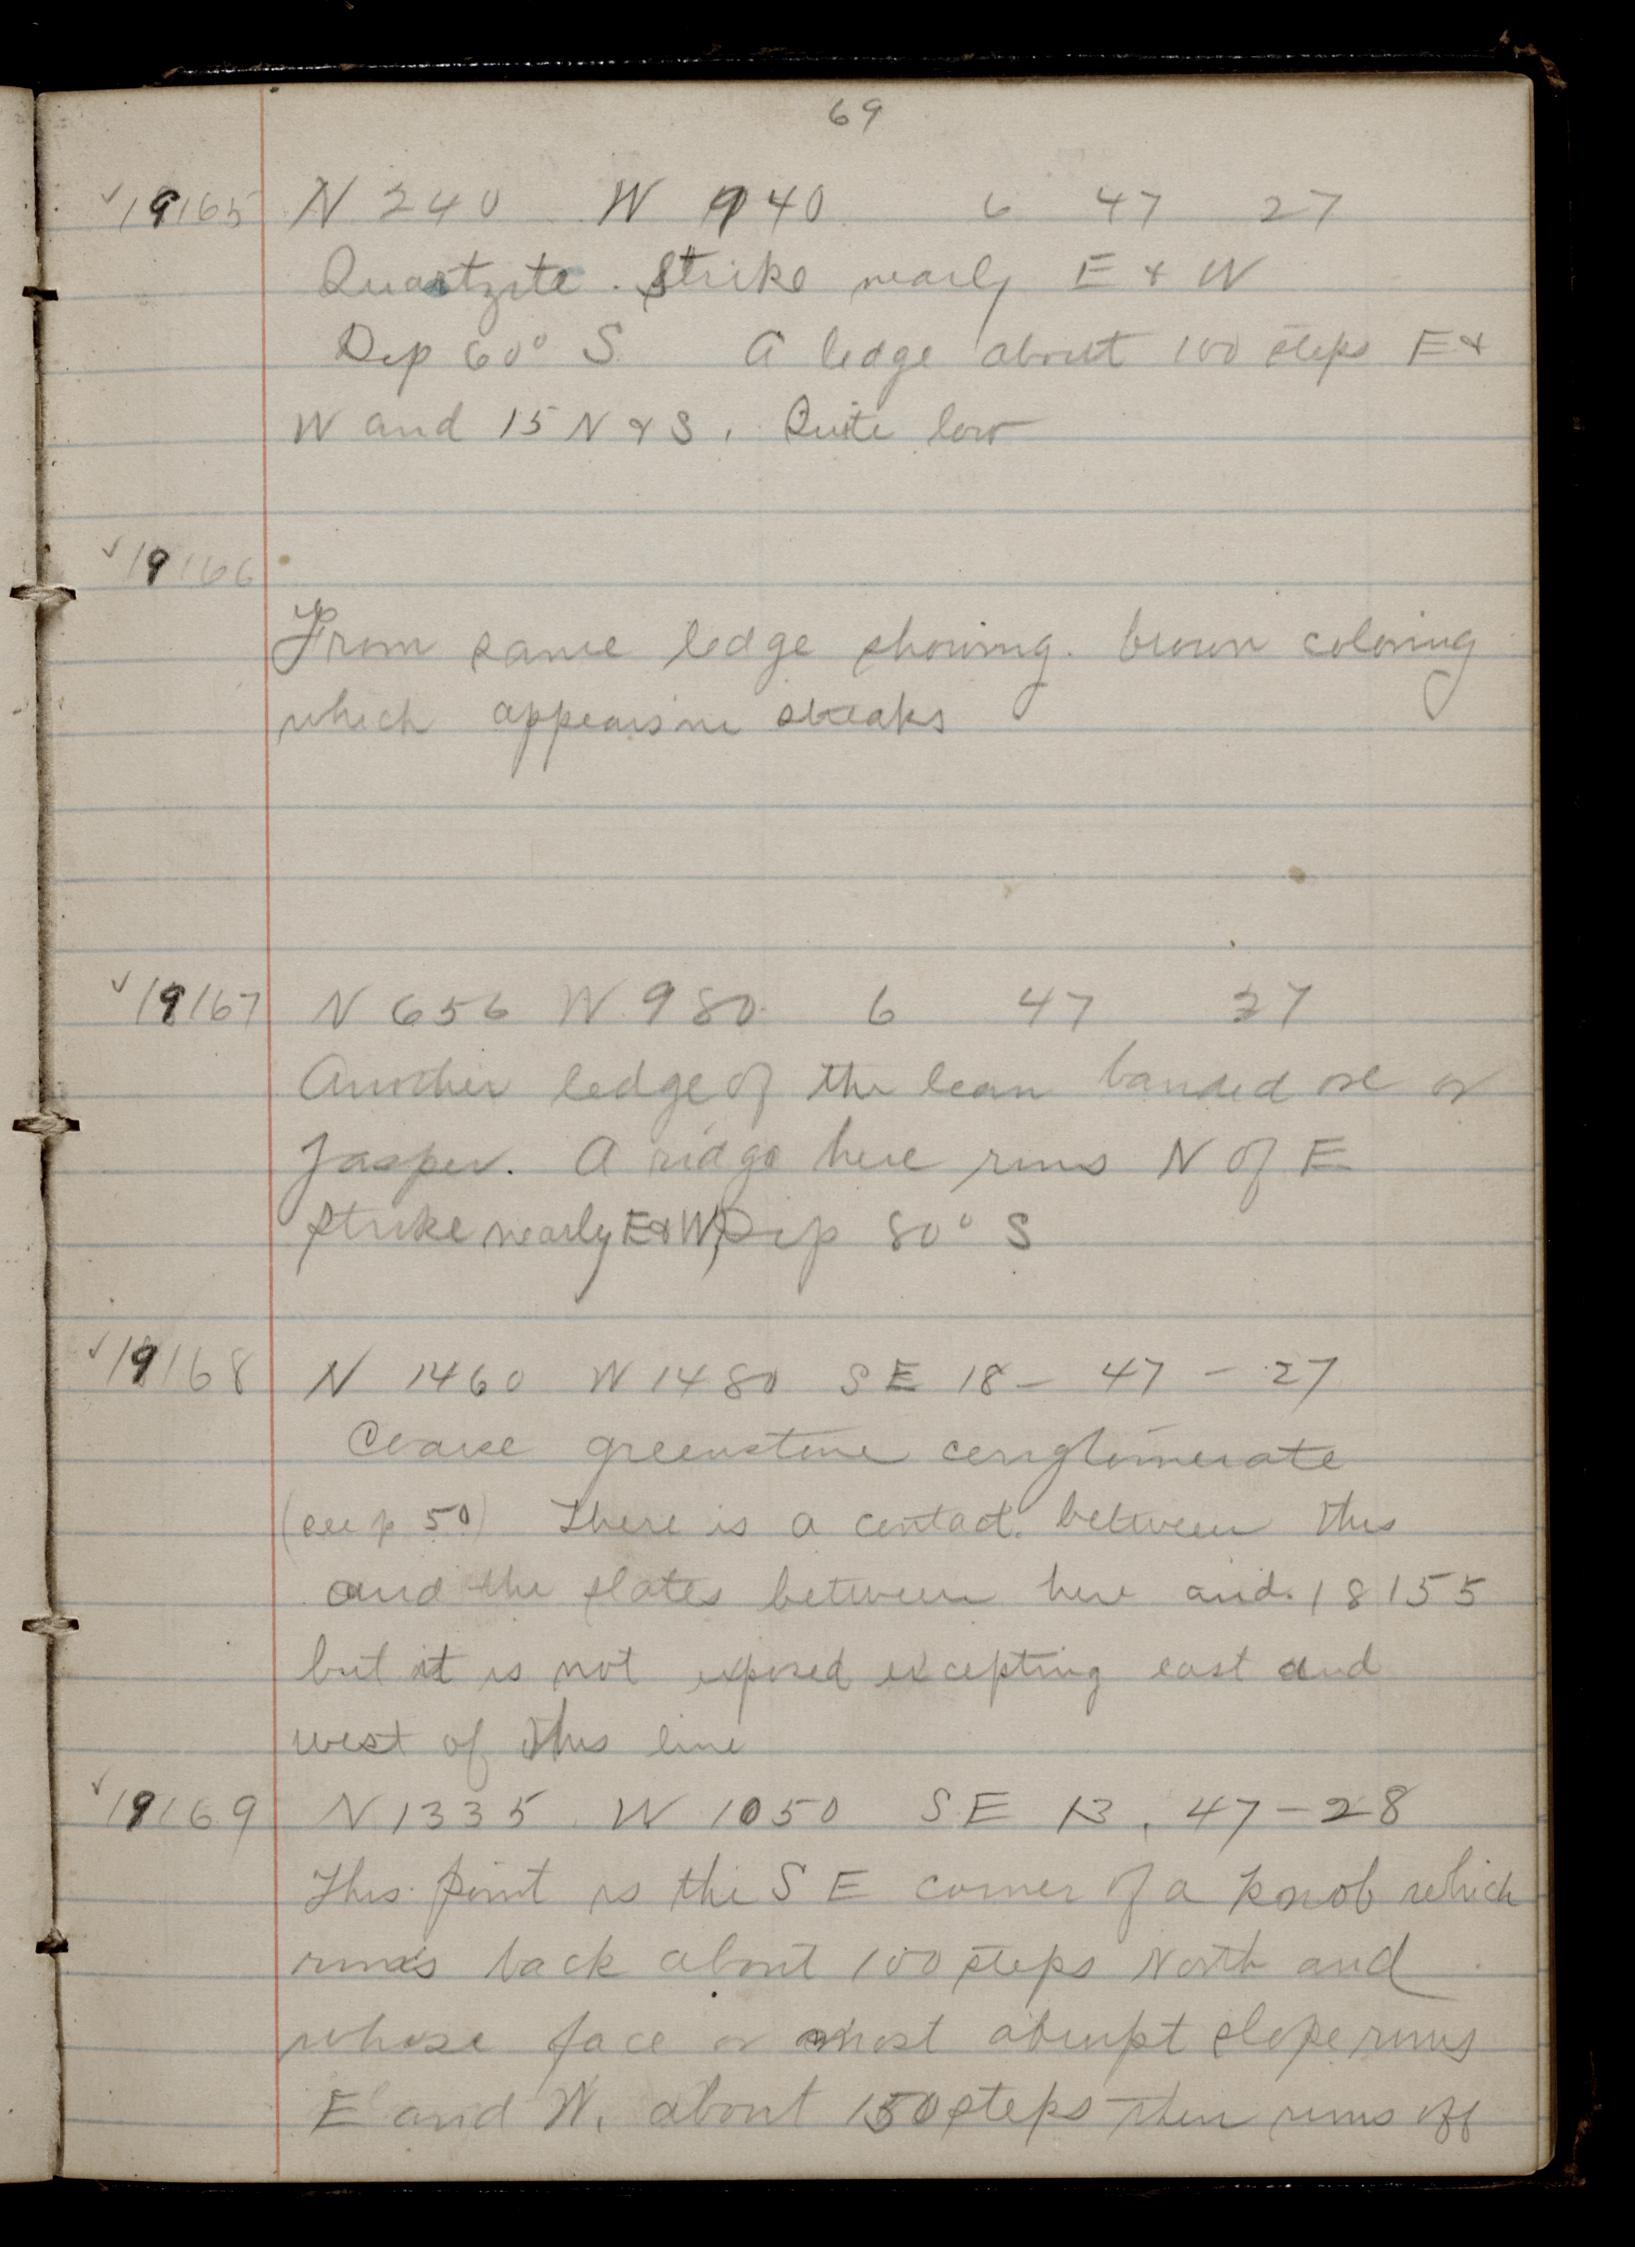 69
✓19165 N 240 W 940 6 47 27
Quartzite. Strike nearly E & W
Dip 60° S. A ledge about 100 steps E &
W and 15 N & S. Quite low
✓19166
From same ledge showing brown coloring
which appears in streaks
✓19167 N 656 W 980 6 47 27
Another ledge of the lean banded ore or
Jasper. A ridge here runs N of E
Strike nearly E & W, Dip 80° S
✓19168 N 1460 W 1480 SE 18 - 47 - 27
Coarse greenstone conglomerate
(see p 50) There is a contact between this
and the slates between here and 18155
but it is not exposed excepting east and
west of this line
✓19169 N 1335 W 1050 SE 13, 47 - 28
This point is the S E corner of a knob which
runs back about 100 steps North and
whose face or most abrupt slope runs
E and W. about 150 steps then runs off